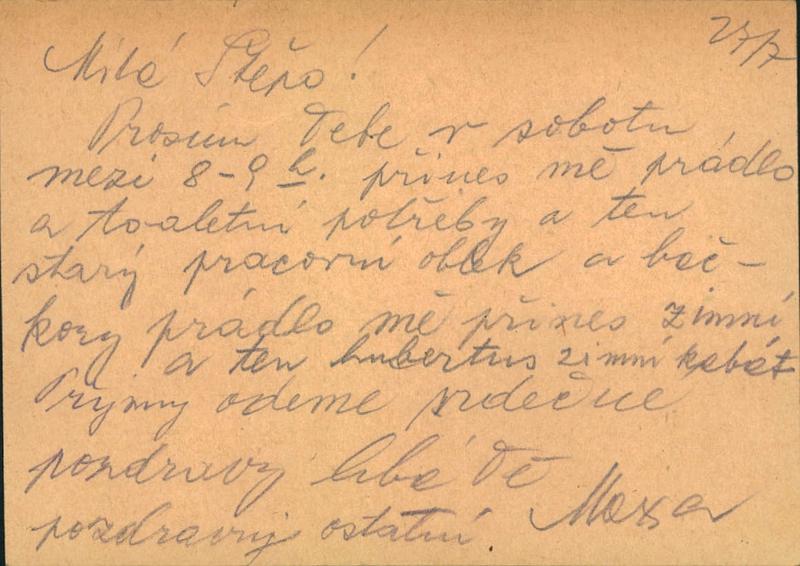 27/7
Milá Štěpo!
Prosim Tebe v sobotu
mezi 8-9 h. přines mě prádlo
a toaletní potřeby a ten
starý pracovní oblek a bač-
kory prádlo mě přines zimní
a ten hubertus zimní kabát
Příjmy odeme srdečné
pozdravy líbá Tě
pozdravuj ostatní